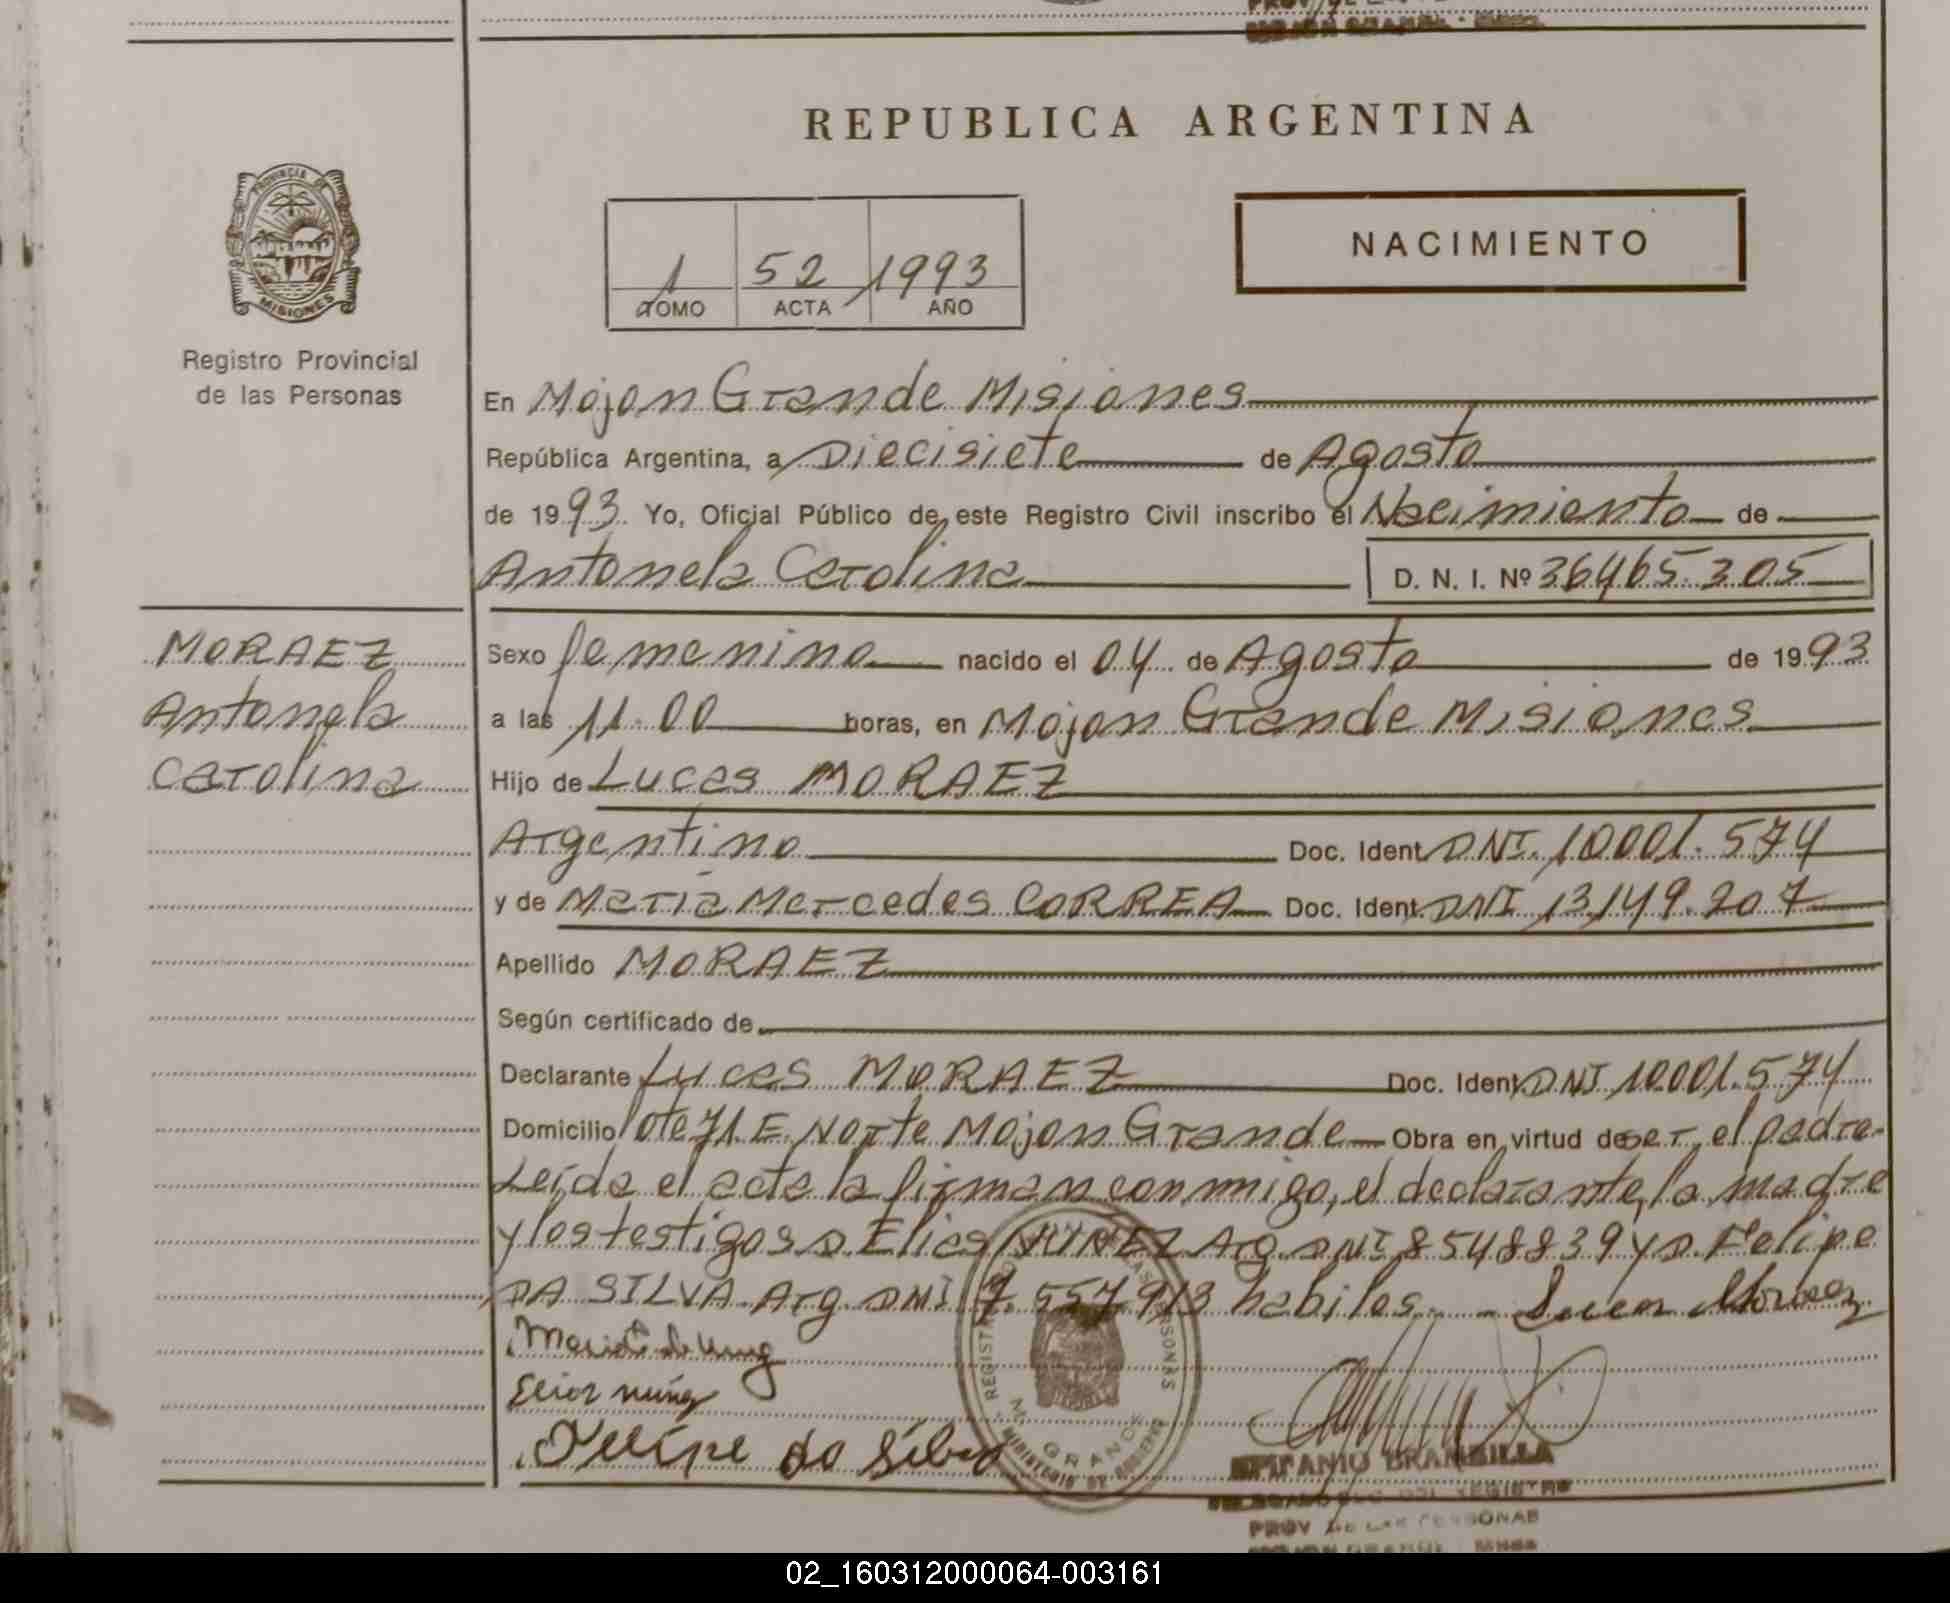 REPUBLICA ARGENTINA
PROVINCIA DE
MISIONES
Registro Provincial
de las Personas
1 52 1993
TOMO ACTA AÑO
NACIMIENTO
En Mojon Grande Misiones
República Argentina, a Diecisiete de Agosto
de 1993. Yo, Oficial Público de este Registro Civil inscribo el Nacimiento de
Antonela Carolina D. N. I. Nº 36465.305
MORAEZ
Antonela
Carolina
Sexo femenino nacido el 04 de Agosto de 1993
a las 11.00 horas, en Mojon Grande Misiones
Hijo de Lucas MORAEZ
Argentino Doc. Ident. DNI. 10001.574
y de Maria Mercedes CORREA Doc. Ident. DNI 13149.207
Apellido MORAEZ
Según certificado de
Declarante Lucas MORAEZ Doc. Ident. DNI 10.001.574
Domicilio lote 71.E Norte Mojon Grande Obra en virtud de ser el padre.
Leida el acta la firman conmigo, el declarante, la madre
y los testigos D. Elias NUÑEZ Arg. DNI 8548839 y D. Felipe
DA SILVA Arg. DNI 7.557913 habiles.
Elias nuñez
Felipe da Silva
REGISTRO PERSONAS
M. GRANDE
MINISTERIO DE GOBIERNO
EPIFANIO BRAMBILLA
PROV DE LAS PERSONAS
02_160312000064-003161